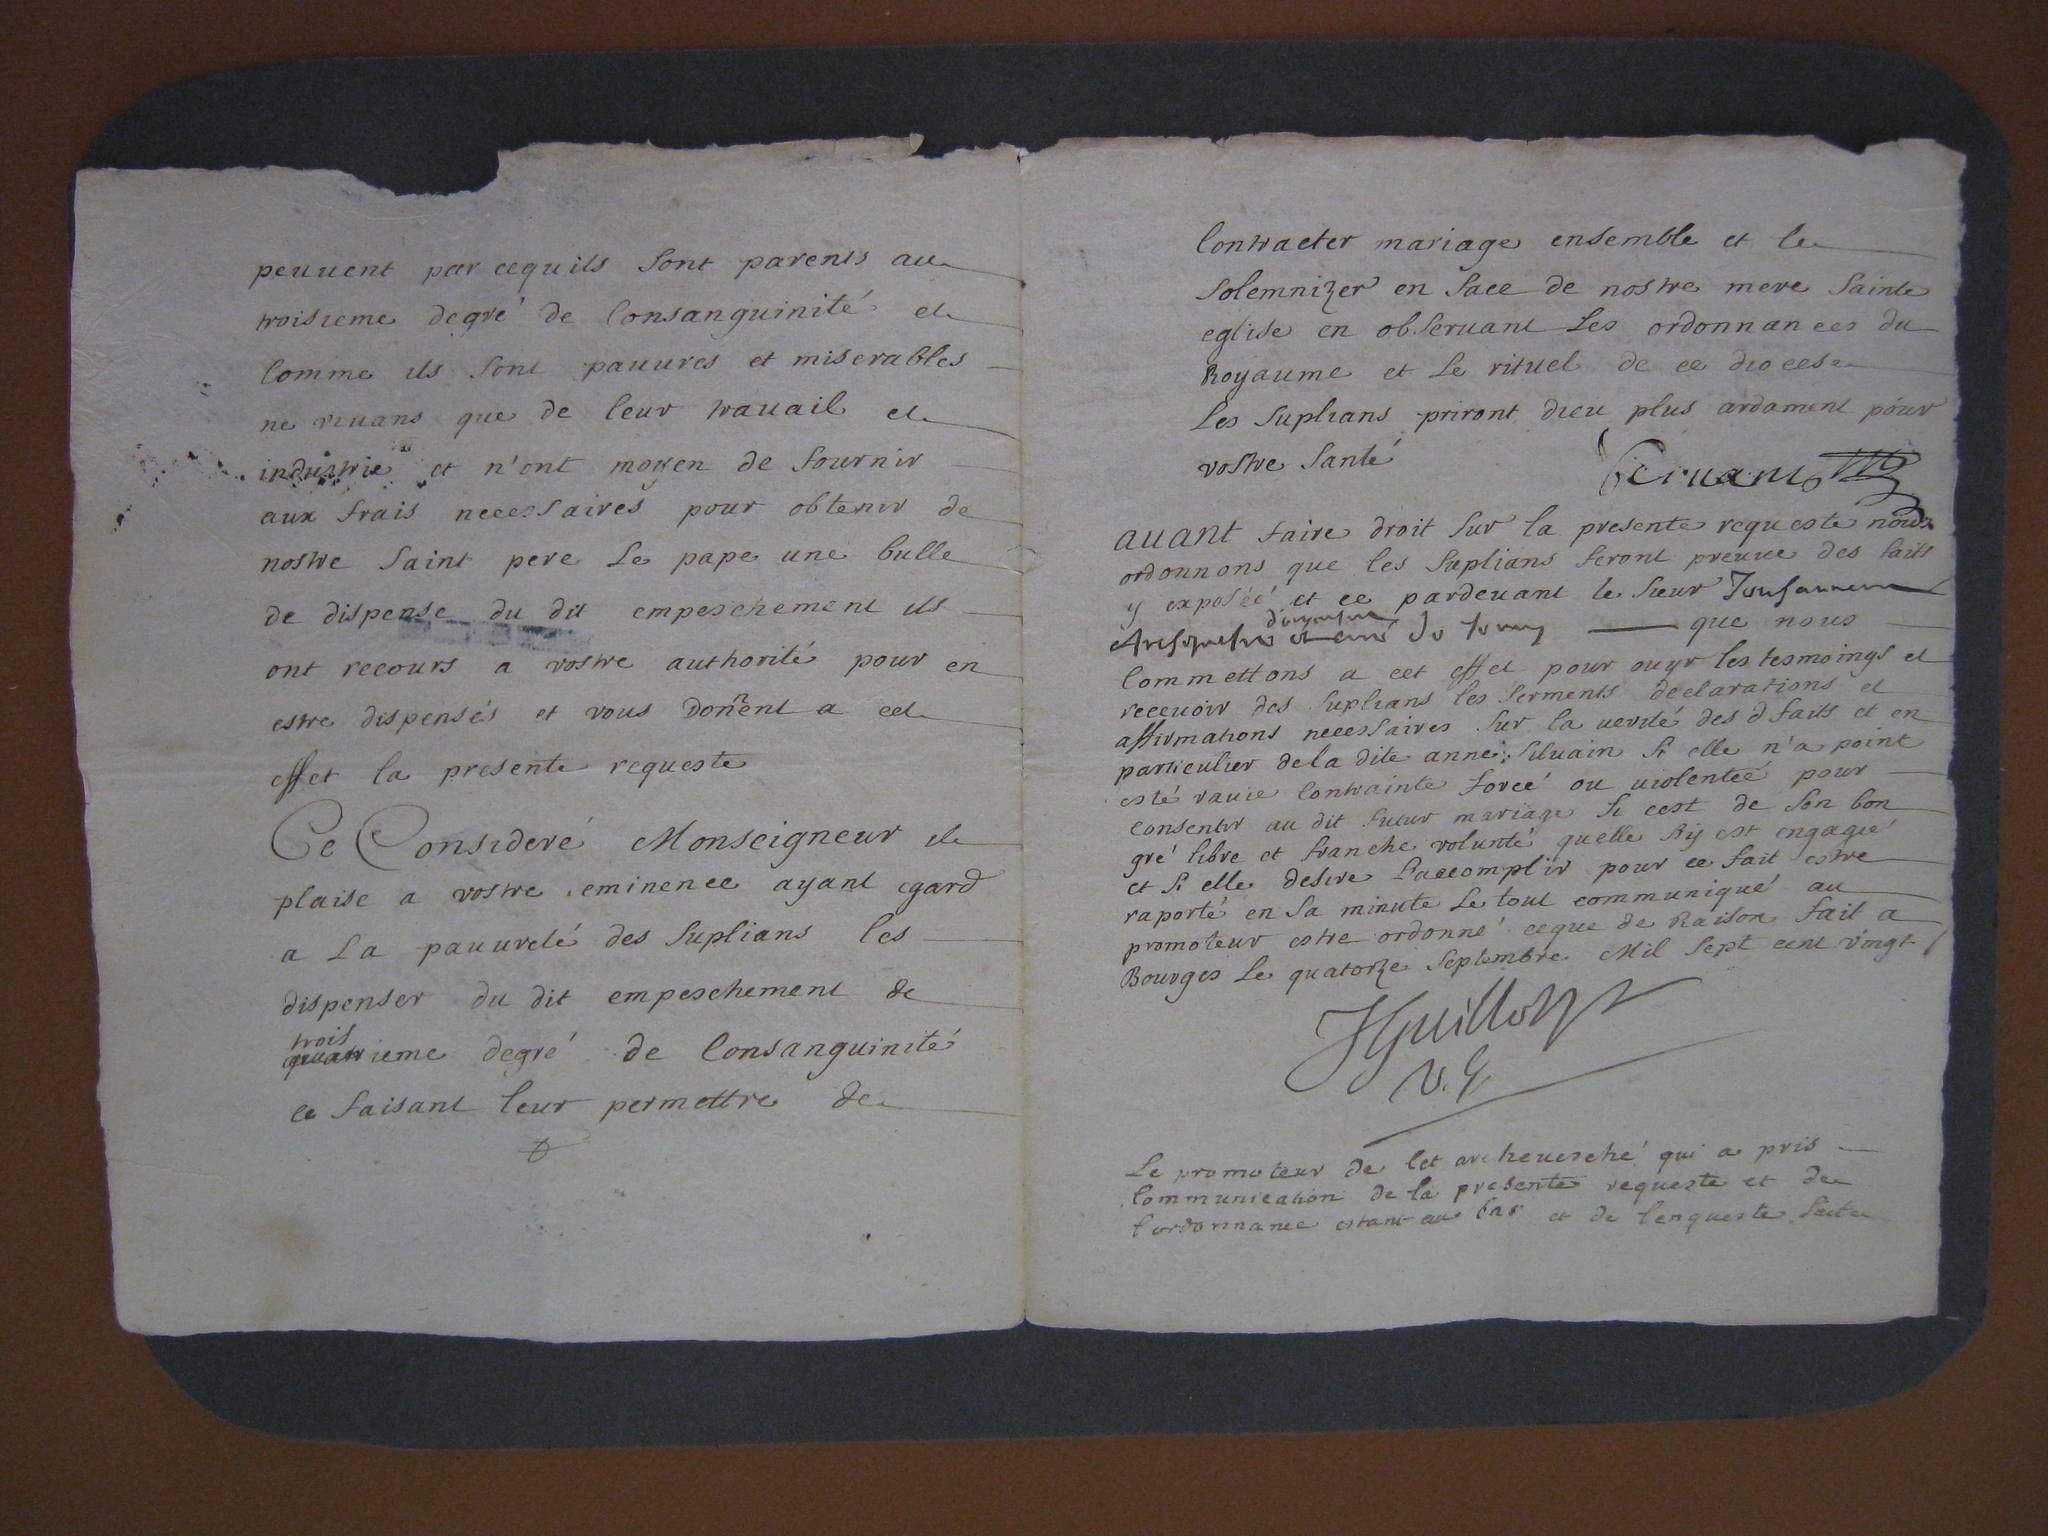 peuuent par cequils sont parents au
troisieme degré de Consanguinité et
Comme ils sont pauures et miserables
ne viuans que de leur trauail et
industrie et n'ont moyen de fournir
aux frais necessaires pour obtenir de
nostre saint pere Le pape une bulle
de dispense du dit empeschement ils
ont recours a vostre authorité pour en
estre dispensés et vous Donnent a cet
effet la presente requeste
Ce Consideré Monseigneur il
plaise a vostre eminence ayant egard
a La pauureté des suplians les
dispenser du dit empeschement de
trois
quatrieme degré de Consanguinité
ce faisant leur permettre de
Contracter mariage ensemble et le
solemnizer en face de nostre mere sainte
eglise en obseruant Les ordonnances du
Royaume et Le rituel de ce diocese
Les suplians priront dieu plus ardament pour
vostre santé
auant faire droit sur la presente requeste nous
ordonnons que les suplians feront preuue des faits
y exposéé et ce pardeuant le sieur
que nous
Commettons a cet effet pour ouyr les tesmoings et
receuoir des suplians les serments declarations et
affirmations necessaires sur la uerité des d faits et en
particulier dela dite anne siluain si elle n'a point
esté rauie Contrainte forcé ou uiolenteé pour
consentir au dit futur mariage si cest de son bon
gré libre et franche volunté quelle sÿ est engagié
et si elle desire Laccomplir pour ce fait estre
raporté en sa minute Le tout communiqué au
promoteur estre ordonné ceque de Raison fait a
Bourges Le quatorze septembre Mil sept cent vingt
V. G
Le promoteur de Cet archeuesché qui a pris
Communication de la presente requeste et de
l'ordonnance estant au bas et de lenqueste faite